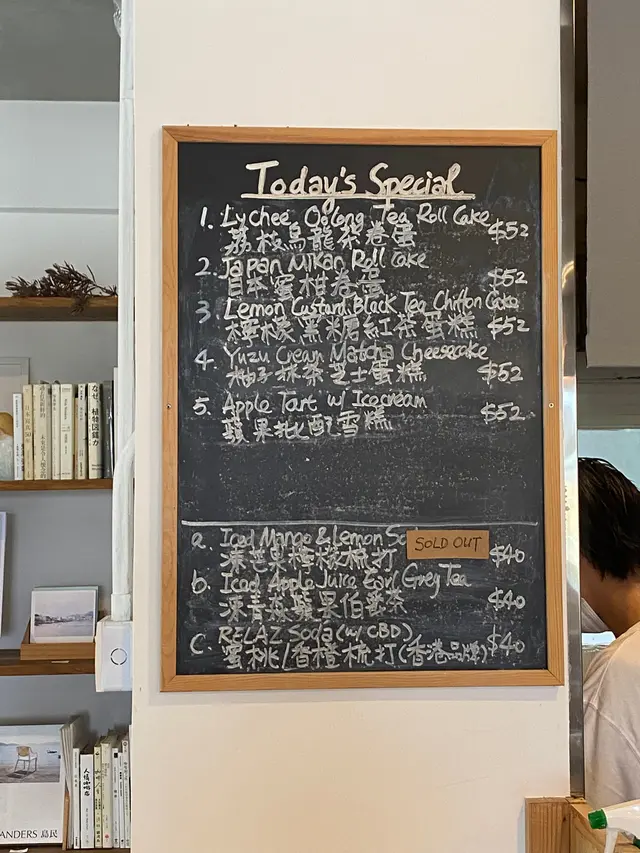 Today's Special
1. Lychee Oolong Tea Roll Cake
荔枝烏龍茶卷蛋 $52
2. Japan Mikan Roll cake
日本蜜柑卷蛋 $52
3. Lemon Custard Black Tea Chiffon Cake
檸檬黑糖紅茶蛋糕 $52
4. Yuzu Cream Matcha Cheesecake
柚子抹茶芝士蛋糕 $52
5. Apple Tart w/ Icecream
蘋果批配雪糕 $52
a. Iced Mango & Lemon So
SOLD OUT
凍芒果檸檬梳打 $40
b. Iced Apple Juice Earl Grey Tea
凍青森蘋果伯爵茶 $40
C. RELAZ Soda (w/ CBD)
蜜桃/香橙梳打(香港品牌) $40
ANDERS 島民